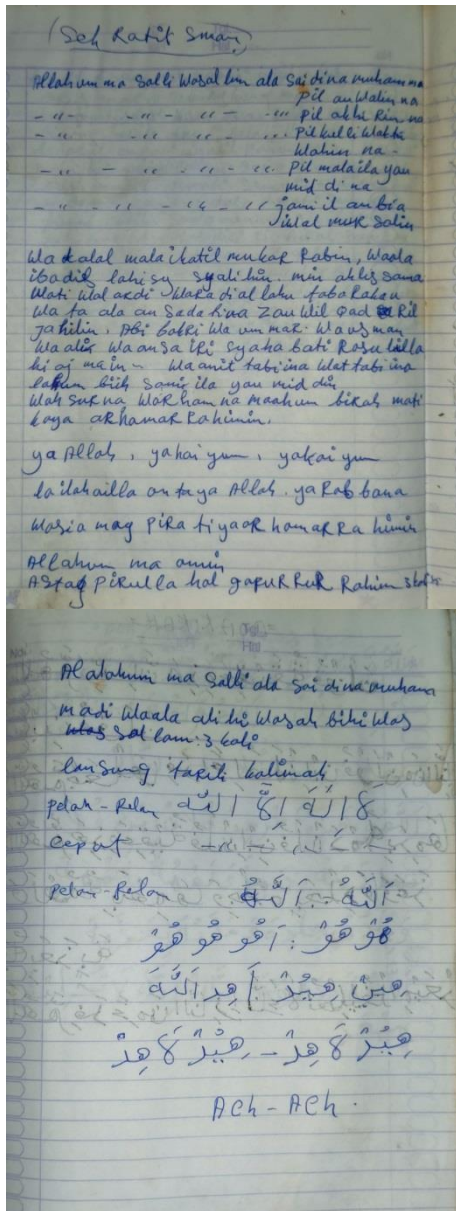 (Seh Ratit Sman)
Allahum ma Salli Wasallim ala Sai dina muhamma
pil auwalin na
- " - - " - " - - " pil akhi Rin na
- " - " - " - " pil kulli wakti
Wahin na -
- " - - " - " - " pil malaila yau
mid di na
- " - - " - " - " jami il anbia
iwal muk Salin
Wa dalal malaikatil mukar Rabin, Waala
ibadil lahisy syalihin. min ahlis sama
Wati Wal ardi Waradiallahu tabarakau
Wa ta ala an Sadahina Zau wil Qad Ril
jahilin, Abi bakri Wa um mar. Wausman
Waalii Waansairi syaha bati Rosulilla
hi aj main - Waanit tabiina Wattabiina
lahum biih Sanis ila yau mid din
Wah Surna War ham na maahum birah mati
kaya arhamar Rahimin.
ya Allah, yahaiyum, yakaiyum
lailahailla antaya Allah. ya Rabbana
Wasia mag Piratiyaar hamarra himin
Allahum ma amin
Astag Pirulla hal gapurRur Rahim 3 kali
Al alahum ma Salli ala Sai dina muhama
madi Waala alihi Wasah bihi Was
Sal lam: 3 kali
langsung tarik kalimah
pelan - Pelan لَا اِلٰهَ اِلَّا اللّٰه
cepat - " -
pelan - Pelan اَللّٰهُ - اَللّٰهُ
هُوْ هُوْ : اَهُو هُو هُوْ
هِيْنْ هِيْدْ | اَهِد اَللّٰهَ
هِيْدْ لَاهِدْ - هِيْدْ لَاهِدْ
ACh - ACh .